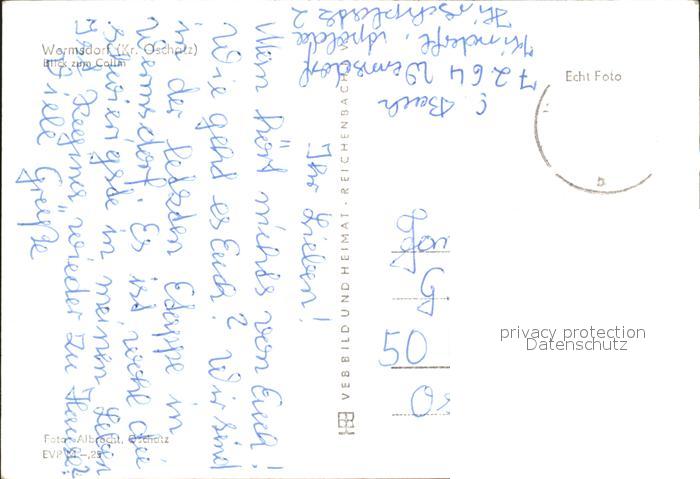 Wermsdorf (Kr. Oschatz)
Blick zum Collm
Echt Foto
E. Bach
7264 Wermsdorf
Kinderft.
2
Ihr Lieben!
Man hört nichts von Euch!
Wie geht es Euch? Wir sind
in der letzten Etappe in
Wermsdorf. Es ist wohl die
schwierigste in meinem Leben
Ist Regina wieder zu Hause?
Viele Grüße
VEB BILD UND HEIMAT · REICHENBACH
50
privacy protection
Datenschutz
Foto: Albrecht, Oschatz
EVP M -,25